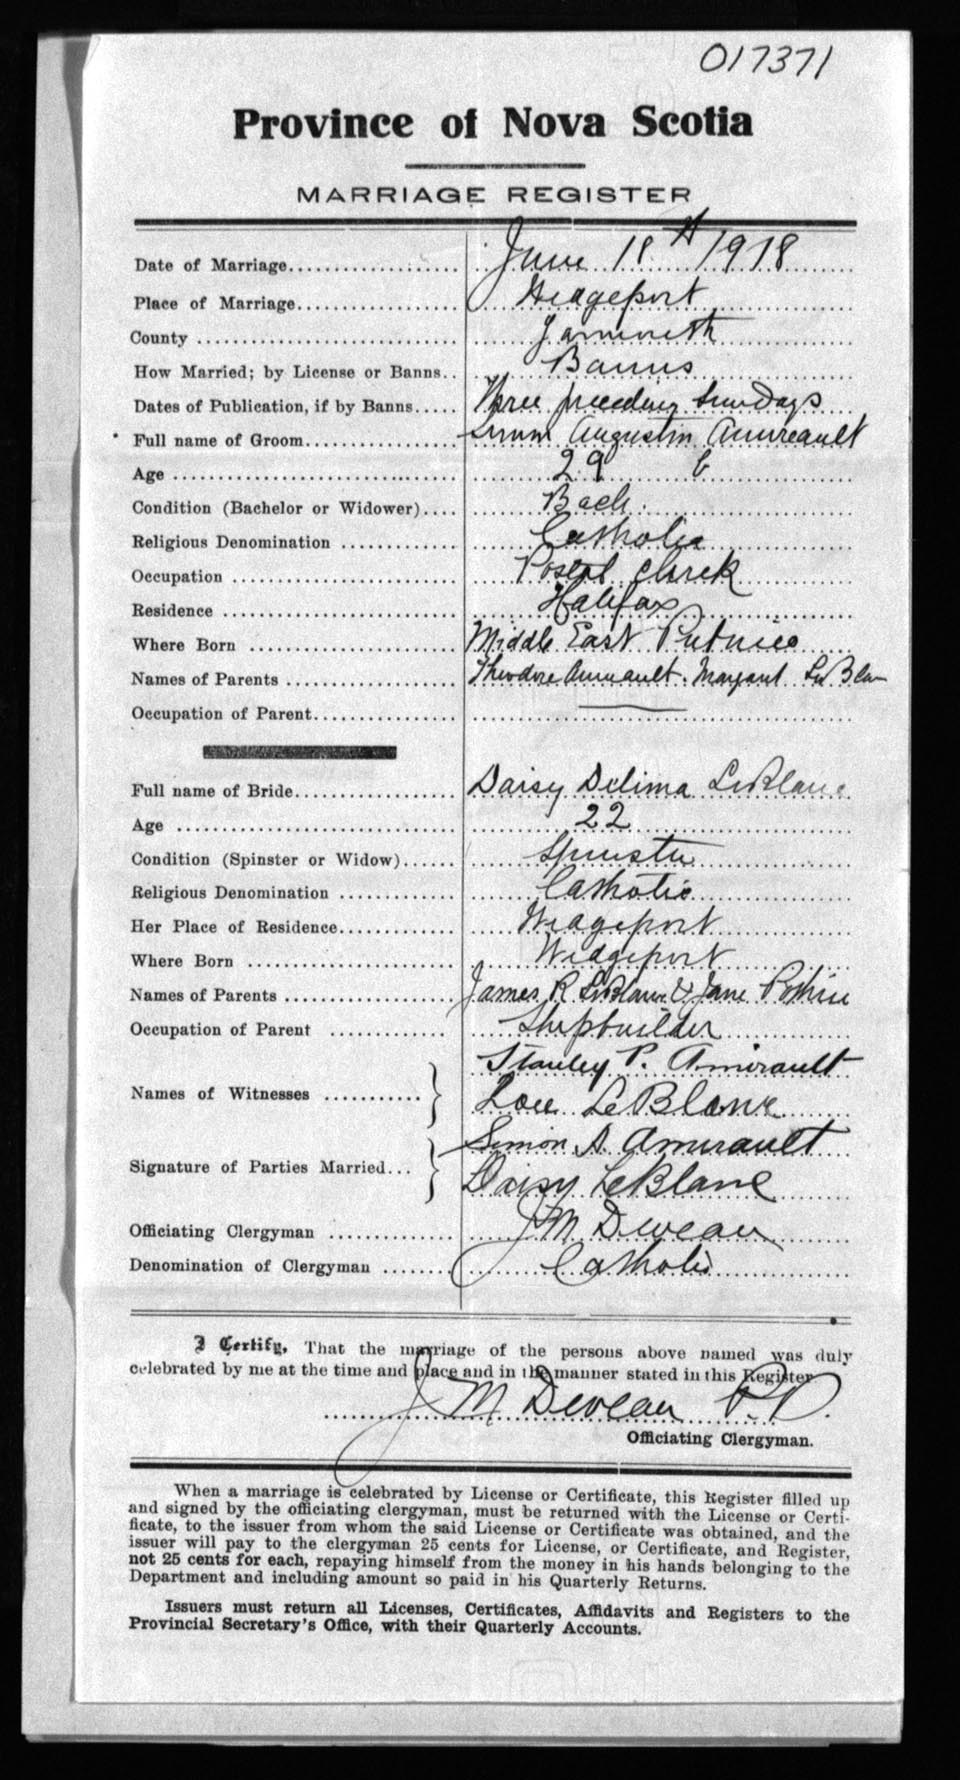 017371
Province of Nova Scotia
MARRIAGE REGISTER
Date of Marriage.................... June 18th 1918
Place of Marriage................... Wedgeport
County .............................. Yarmouth
How Married; by License or Banns.. Banns
Dates of Publication, if by Banns..... Three preceding Sundays
Full name of Groom.................. Simon Augustin Amireault
Age ................................ 29 b
Condition (Bachelor or Widower).... Bach.
Religious Denomination ............. Catholic
Occupation ......................... Postal Clerk
Residence .......................... Halifax
Where Born ........................ Middle East Pubnico
Names of Parents ................... Theodore Amirault. Margaret LeBlanc
Occupation of Parent................ ———
Full name of Bride.................. Daisy Delima LeBlanc
Age ................................ 22
Condition (Spinster or Widow)...... Spinster
Religious Denomination ............. Catholic
Her Place of Residence.............. Wedgeport
Where Born ........................ Wedgeport
Names of Parents ................... James R LeBlanc & Jane Pothier
Occupation of Parent ............... Shipbuilder
Names of Witnesses ........... } Stanley P. Amirault
LeBlanc
Signature of Parties Married... } Simon A. Amirault
Daisy LeBlanc
Officiating Clergyman .............. J M Deveau
Denomination of Clergyman ........ Catholic
I Certify, That the marriage of the persons above named was duly
celebrated by me at the time and place and in the manner stated in this Register
J M Deveau P.P.
Officiating Clergyman.
When a marriage is celebrated by License or Certificate, this Register filled up
and signed by the officiating clergyman, must be returned with the License or Certi-
ficate, to the issuer from whom the said License or Certificate was obtained, and the
issuer will pay to the clergyman 25 cents for License, or Certificate, and Register,
not 25 cents for each, repaying himself from the money in his hands belonging to the
Department and including amount so paid in his Quarterly Returns.
Issuers must return all Licenses, Certificates, Affidavits and Registers to the
Provincial Secretary's Office, with their Quarterly Accounts.